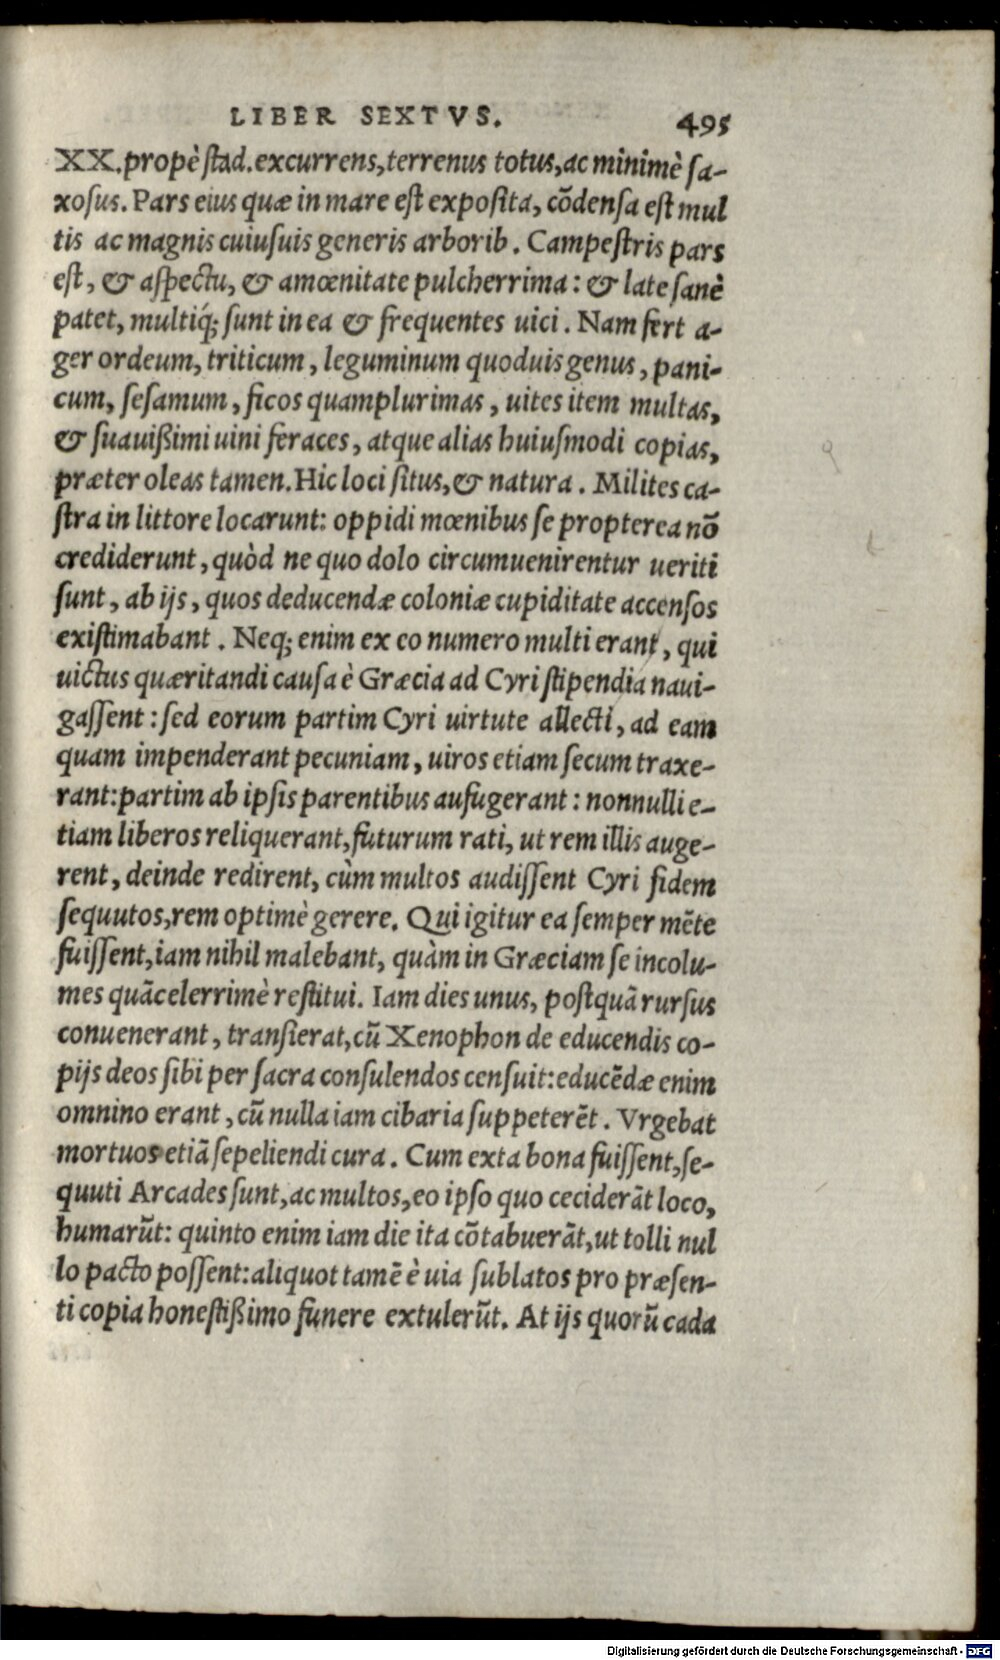 LIBER SEXTVS. 495
XX. propè ſtad. excurrens, terrenus totus, ac minimè ſa-
xoſus. Pars eius quæ in mare eſt expoſita, cõdenſa eſt mul
tis ac magnis cuiuſuis generis arborib. Campeſtris pars
eſt, & aſpectu, & amœnitate pulcherrima: & late ſanè
patet, multiq́; ſunt in ea & frequentes uici. Nam fert a-
ger ordeum, triticum, leguminum quoduis genus, pani-
cum, ſeſamum, ficos quamplurimas, uites item multas,
& ſuauißimi uini feraces, atque alias huiuſmodi copias,
præter oleas tamen. Hic loci ſitus, & natura. Milites ca-
ſtra in littore locarunt: oppidi mœnibus ſe propterea nõ
crediderunt, quòd ne quo dolo circumuenirentur ueriti
ſunt, ab ijs, quos deducendæ coloniæ cupiditate accenſos
exiſtimabant. Neq; enim ex eo numero multi erant, qui
uictus quæritandi cauſa è Græcia ad Cyri ſtipendia naui-
gaſſent: ſed eorum partim Cyri uirtute allecti, ad eam
quam impenderant pecuniam, uiros etiam ſecum traxe-
rant: partim ab ipſis parentibus aufugerant: nonnulli e-
tiam liberos reliquerant, futurum rati, ut rem illis auge-
rent, deinde redirent, cùm multos audiſſent Cyri fidem
ſequutos, rem optimè gerere. Qui igitur ea ſemper mẽte
fuiſſent, iam nihil malebant, quàm in Græciam ſe incolu-
mes quãcelerrimè reſtitui. Iam dies unus, poſtquã rurſus
conuenerant, tranſierat, cũ Xenophon de educendis co-
pijs deos ſibi per ſacra conſulendos cenſuit: educẽdæ enim
omnino erant, cũ nulla iam cibaria ſuppeterẽt. Vrgebat
mortuos etiã ſepeliendi cura. Cum exta bona fuiſſent, ſe-
quuti Arcades ſunt, ac multos, eo ipſo quo ceciderãt loco,
humarũt: quinto enim iam die ita cõtabuerãt, ut tolli nul
lo pacto poſſent: aliquot tamẽ è uia ſublatos pro præſen-
ti copia honeſtißimo funere extulerũt. At ijs quorũ cada
Digitalisierung gefördert durch die Deutsche Forschungsgemeinschaft - DFG